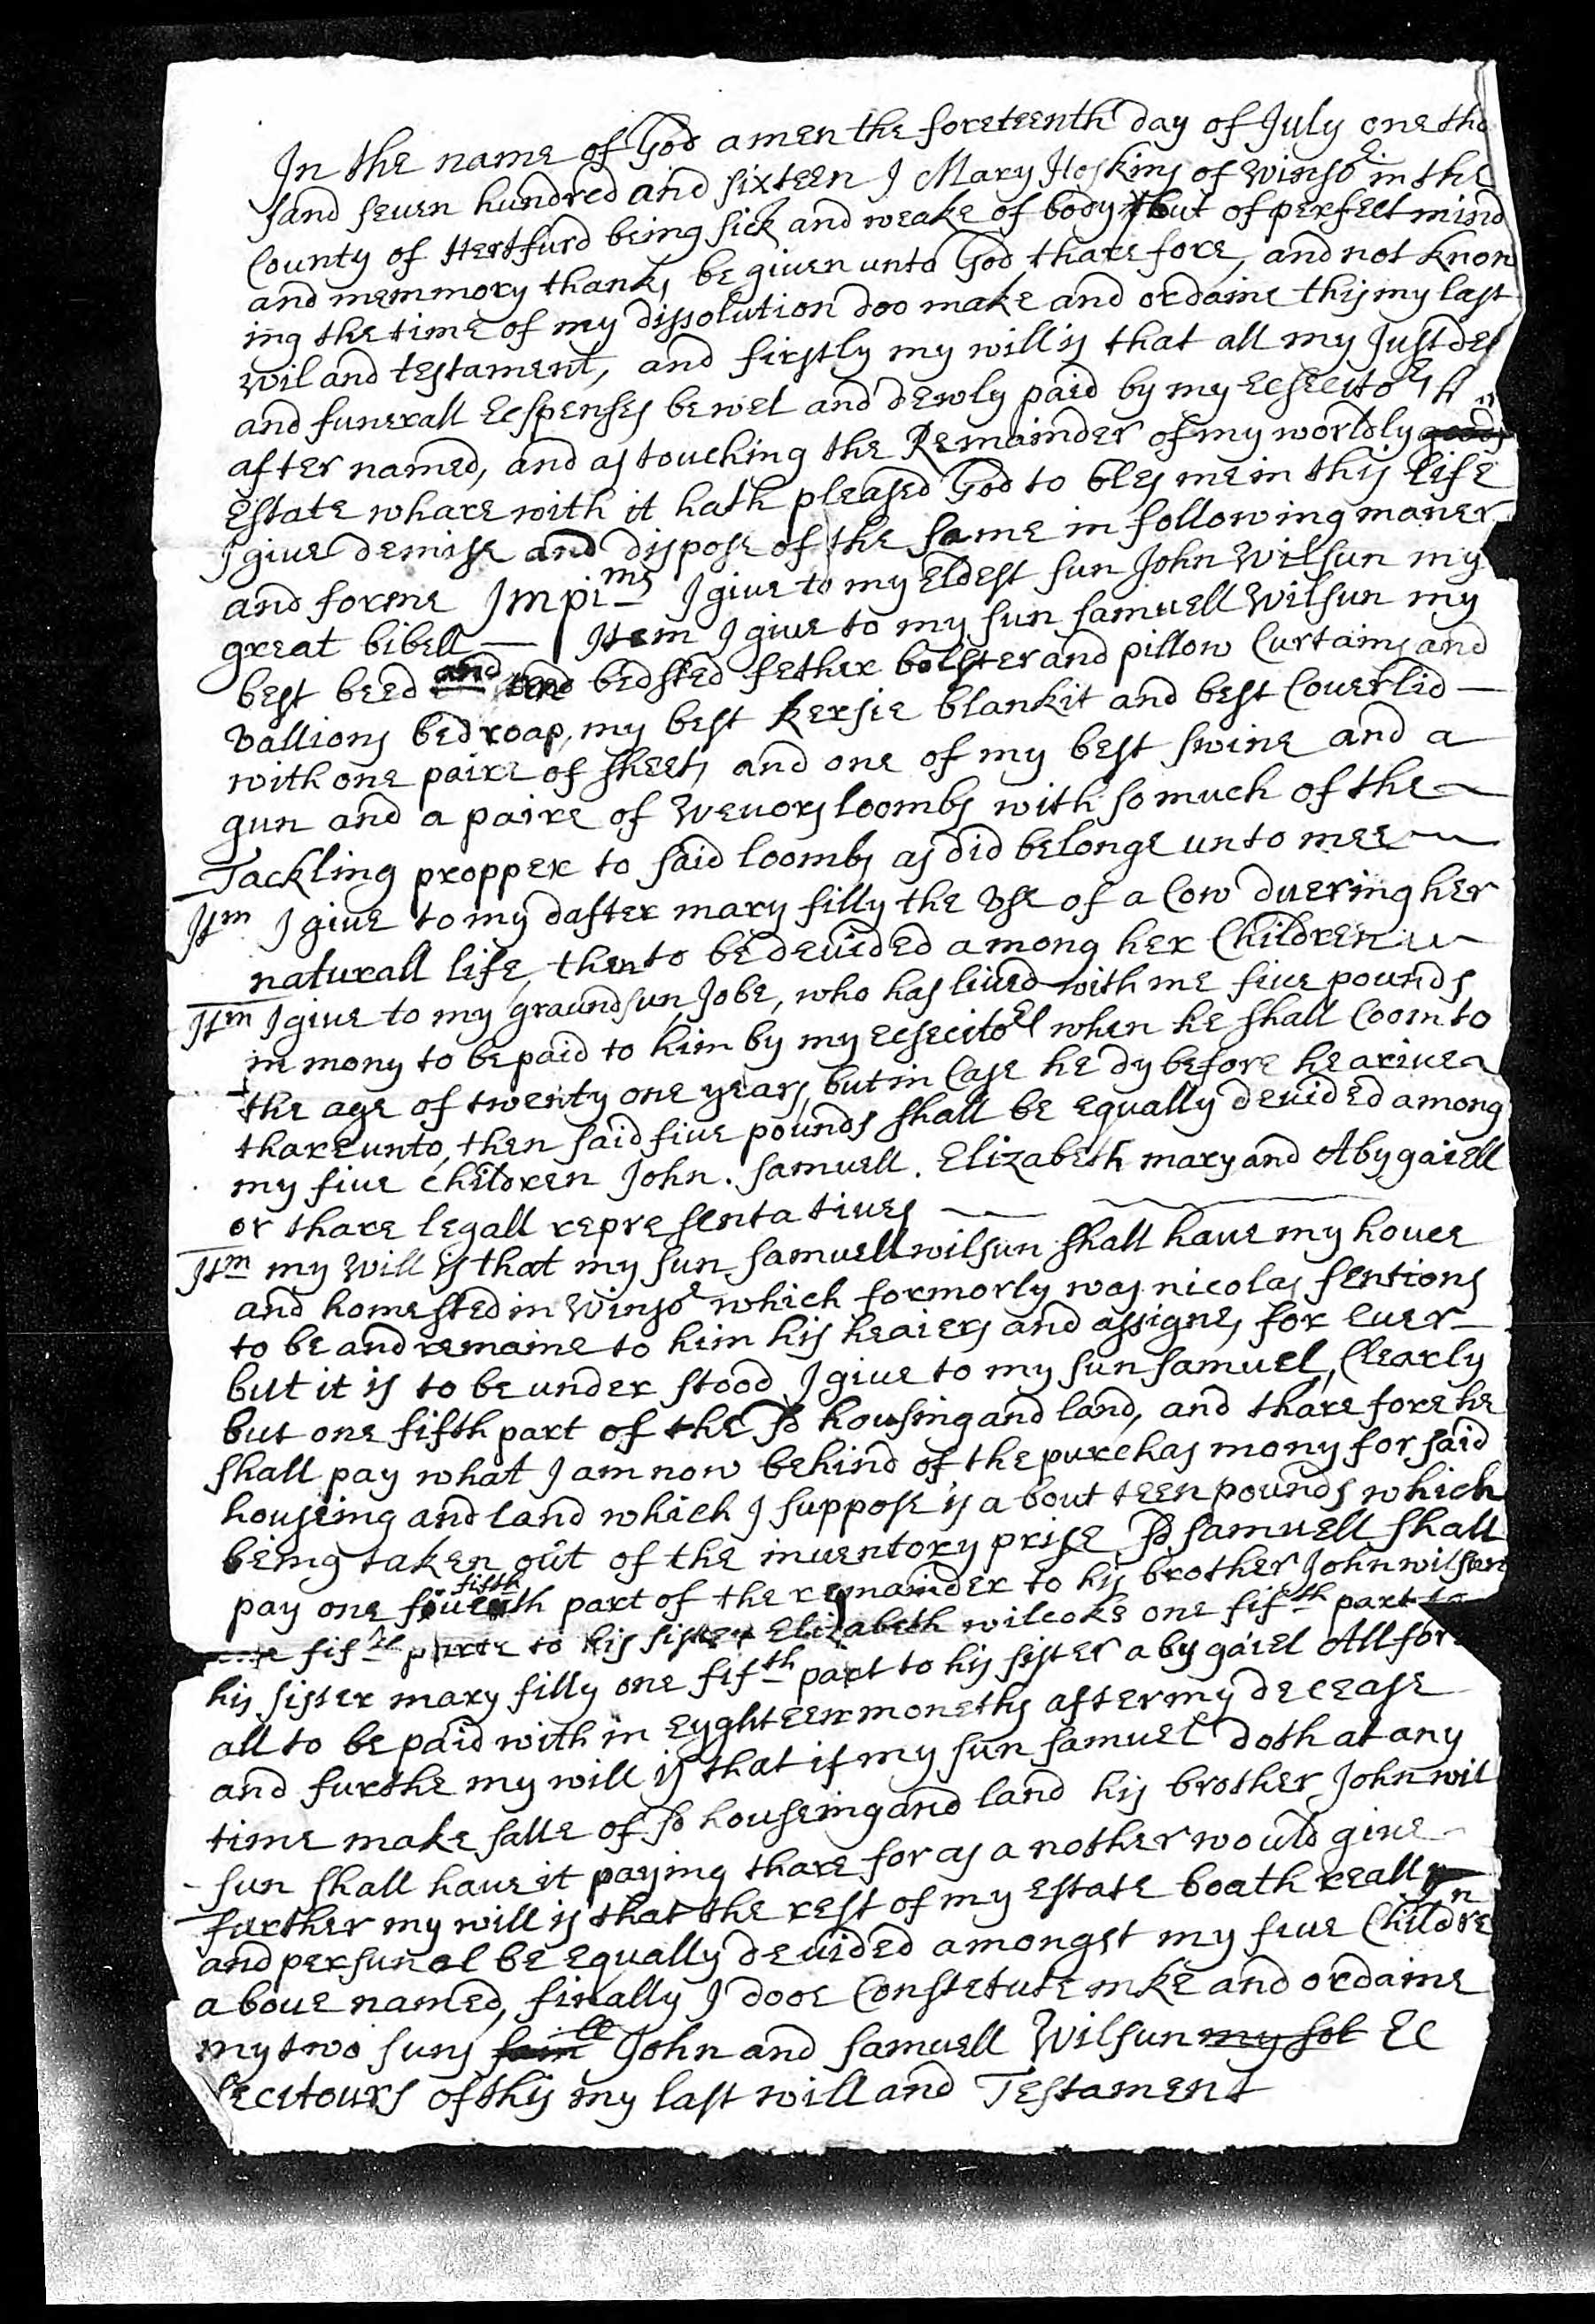 In the name of God amen the foreteenth day of July one tho
sand seuen hundred and sixteen I Mary Hoskins of winsor in the
County of Hertfurd being sick and weake of body but of perfect mind
and memmory thanks be given unto God tharefore, and not know
ing the time of my dissolution doo make and ordaine this my last
wil and testament, and firstly my will is that all my Just
and funerall Ecspenses be wel and dewly paid by my Ecsecitors
after named, and as touching the Remainder of my worldly goods
Estate wharewith it hath pleased God to bles me in this life
I give demise and dispose of the same in following maner
and forme Impims I giue to my Eldest sun John Wilsun my
great bibell — Item I giue to my sun samuell Wilsun my
best beed and bedsted fether bolster and pillow Curtains and
vallions bedroap, my best kersie blankit and best Couerlid —
with one paire of sheets and one of my best swine and a
gun and a paire of Weuors loombs with so much of the
Tackling propper to said loombs as did belonge unto mee
Itm I giue to my dafter mary filly the Vse of a Cow duering her
naturall life, then to be deuided among her Children
Itm I giue to my graundsun Jobe, who has liued with me fiue pounds
in mony to be paid to him by my ecsecitors when he shall Coom to
the age of twenty one years, but in Case he dy before he ariue
thareunto, then said fiue pounds shall be Equally deuided among
my fiue children John. samuell. Elizabeth mary and Abygaiell
or thare legall representatiues —
Itm my will is that my sun samuell wilsun shall haue my houce
and homested in Winsor which formorly was nicolas sentions
to be and remaine to him his heaiers and assignes for Euer —
but it is to be under stood I giue to my sun samuel, Clearly
but one fifth part of the sd housing and land, and tharefore he
shall pay what I am now behind of the purchas mony for said
houseing and land which I suppose is about teen pounds which
being taken out of the inuentory prise sd samuell shall
pay one fouerth fifth part of the remainder to his brother John wilsun
one fifth parte to his sister Elizabeth wilcoks one fifth part to
his sister mary filly one fifth part to his sister abygaiel Allford
all to be paid with in Eyghteen moneths after my decease
and furthe my will is that if my sun samuel doth at any
time make salle of sd houseing and land his brother John wil
sun shall haue it paying thare for as a nother would giue
further my will is that the rest of my Estate boath reall
and persunal be Equally deuided amongst my fiue Children
aboue named, finally I dooe Constetute mke and ordaine
my two suns John and samuell Wilsun my sol Ec
secitours of this my last will and Testament